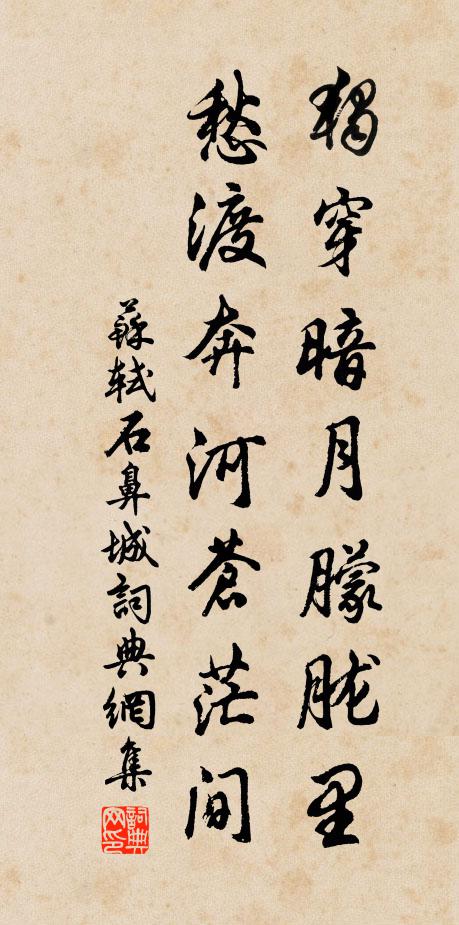 獨穿暗月朦朧里
愁渡奔河蒼茫間
蘇軾石鼻城詞典網集
詞典网印